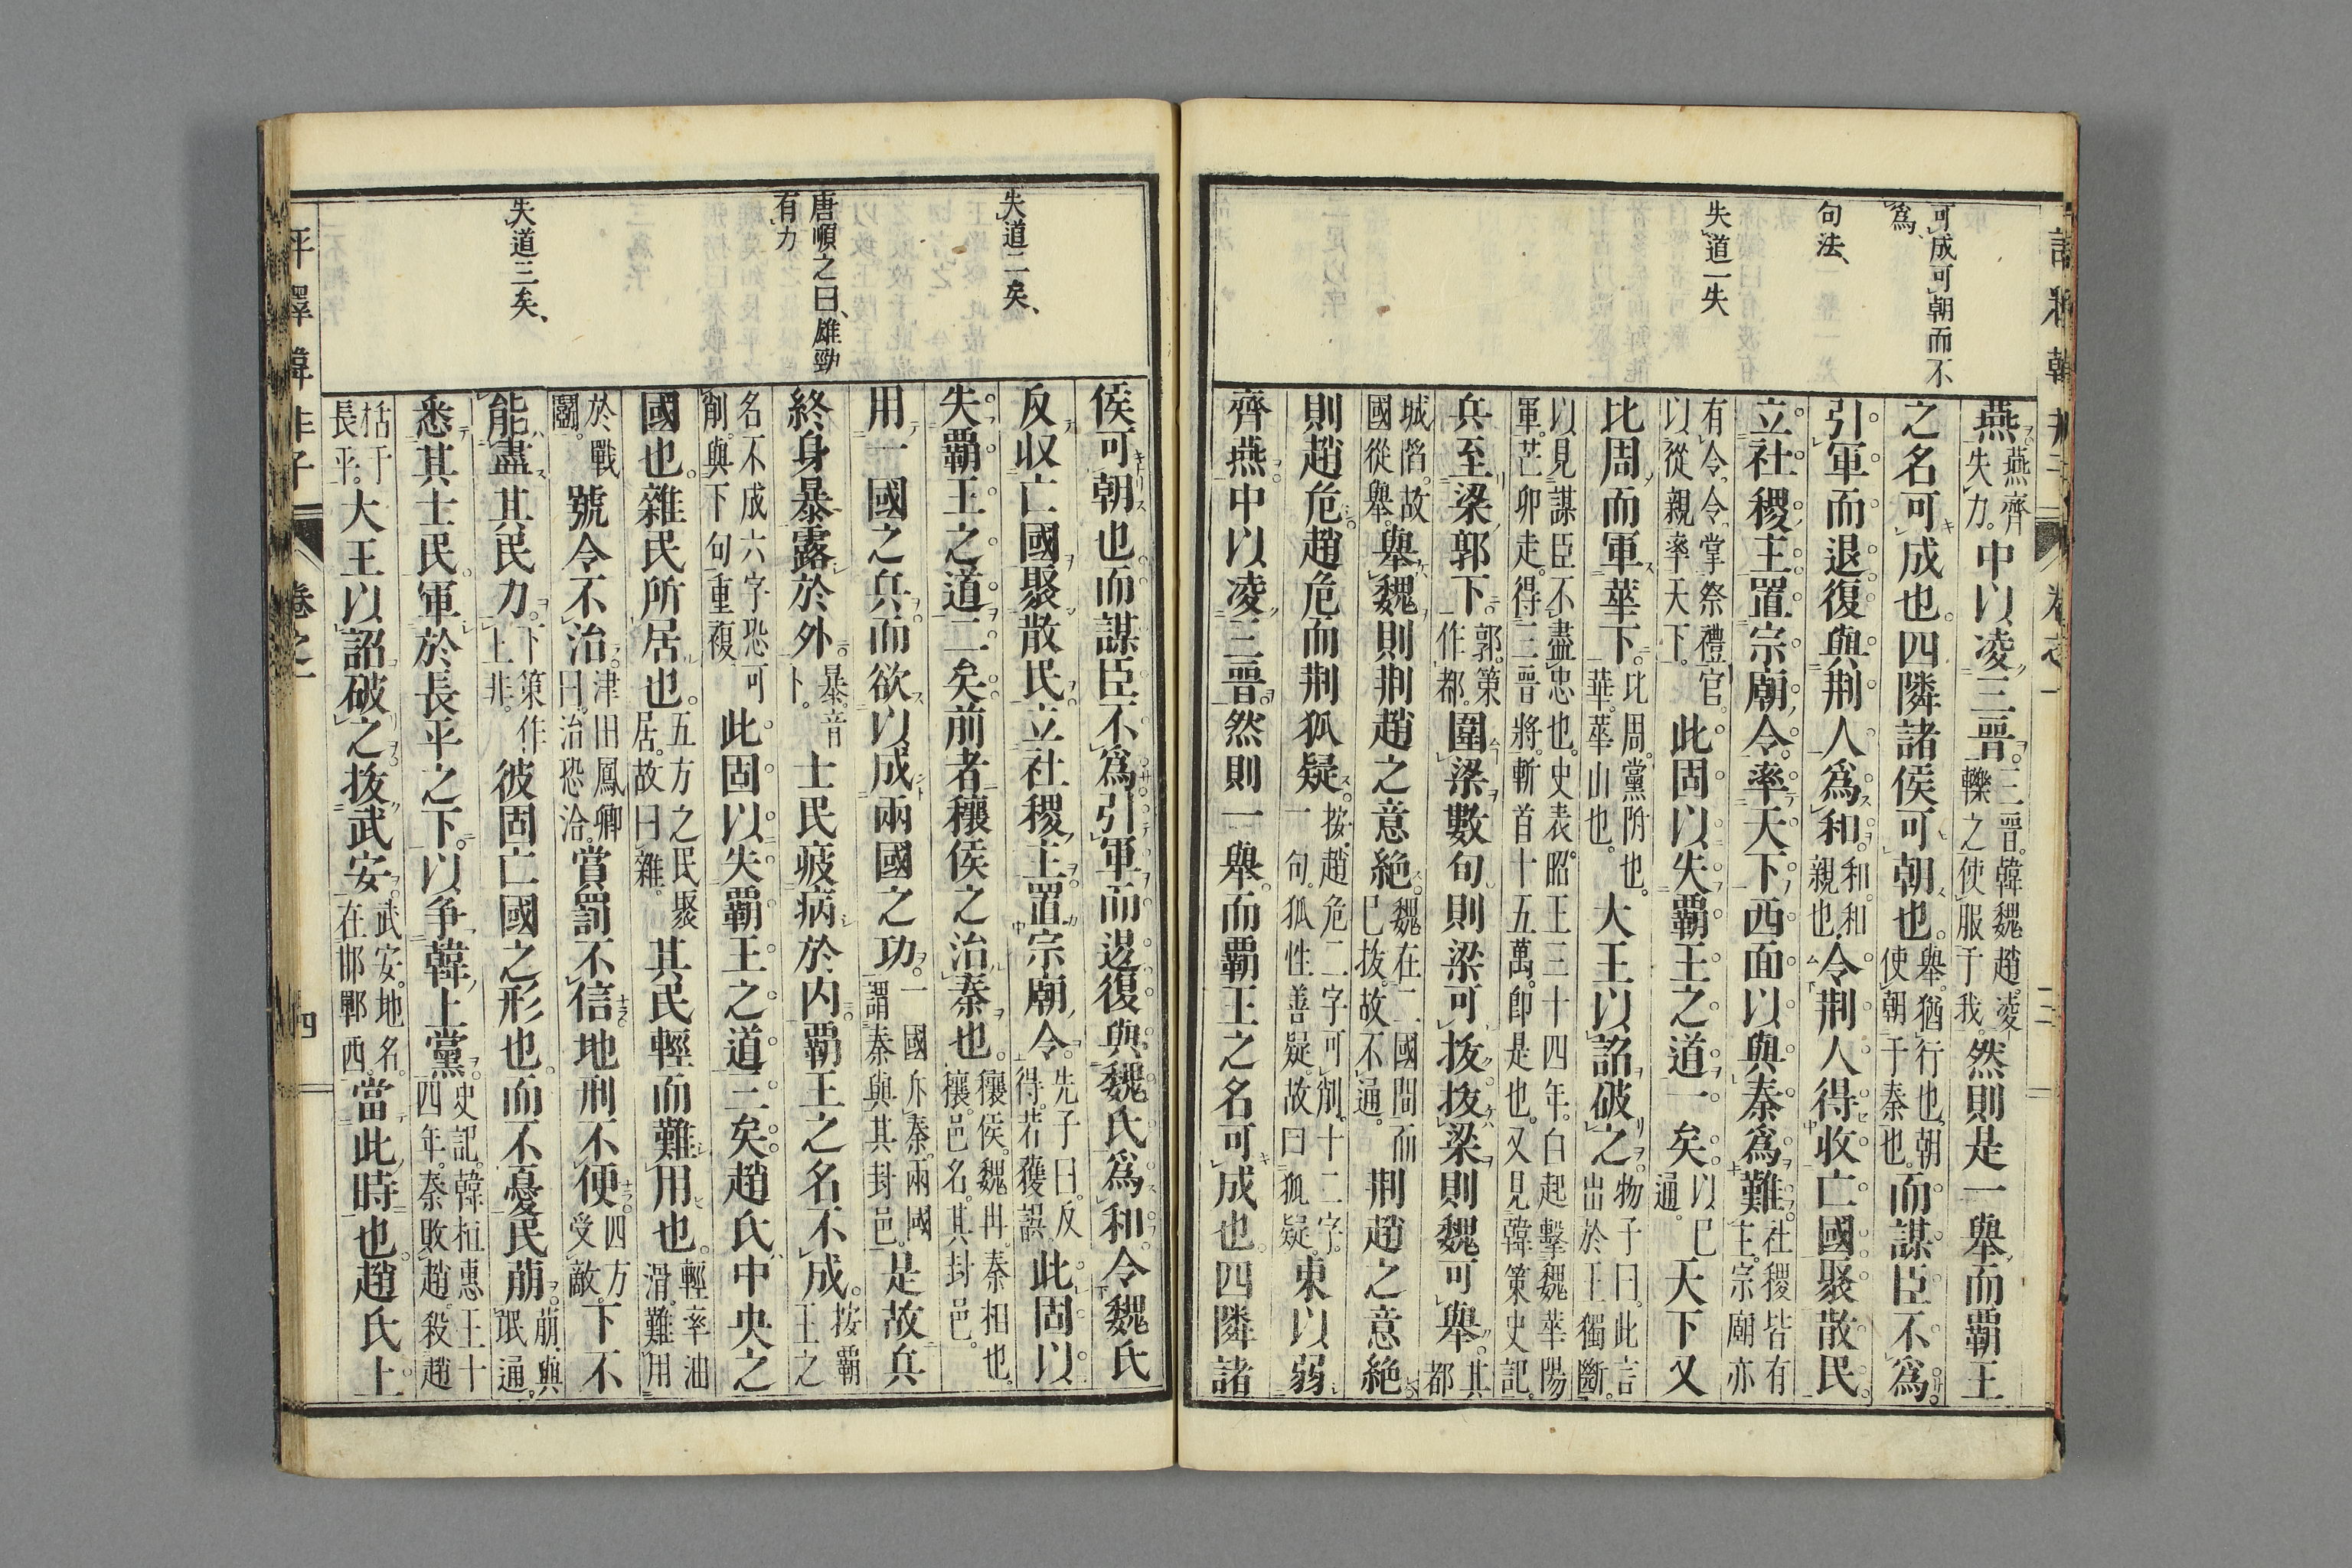 可成可朝而不
爲
句法
失道一失
燕燕齊失力。中以凌三晉。三晉。韓魏趙。凌轢之使服于我。然則是一舉而覇王
之名可成也。四隣諸侯可朝也。舉。猶行也。朝使朝于秦也。而謀臣不爲。
引軍而退復與荆人爲和。和。和親也。令荆人得收亡國聚散民
立社稷主置宗廟令率天下西面以與秦爲難。社稷皆有主。宗廟亦
有令。令。掌祭禮官。以從親率天下。此固以失覇王之道一矣。以已通。天下又
比周而軍華下。比周。黨附也。華。華山也。大王以詔破之。物子曰。此言出於王獨斷。
以見謀臣不盡忠也。史表。昭王三十四年。白起擊魏華陽軍。芒卯走。得三晉將。斬首十五萬。卽是也。又見韓策史記。
兵至梁郭下。郭。策作都。圍梁數旬則梁可拔拔梁則魏可舉。其都
城陷。故國從舉。舉魏則荆趙之意絶。魏在二國間而已拔。故不通。荆趙之意絶
則趙危。趙危而荆狐疑。按。趙危二字可削。十二字。一句。狐性善疑。故曰狐疑。東以弱
齊燕中以凌三晉。然則一舉。而覇王之名可成也。四隣諸
失道二矣
唐順之曰、雄勁
有力
失道三矣
侯可朝也而謀臣不爲引軍而退復與魏氏爲和令魏氏
反收亡國聚散民。立社稷主置宗廟令。先子曰。反得。若獲誤。此固以
失覇王之道二矣前者穰侯之治秦也。穰侯。魏冉。秦相也。穰。邑名。其封邑。
用一國之兵而欲以成兩國之功。一國斥秦。兩國謂秦與其封邑。是故兵
終身暴露於外。暴。音卜。士民疲病於内。覇王之名不成。按覇王之
名不成六字恐可削。與下句重複 此固以失覇王之道三矣趙氏中央之
國也。雜民所居也。五方之民聚居。故曰雜。其民輕而難用也。輕率油滑。難用
於戰鬭。號令不治。津田鳳卿曰。治恐洽。賞罰不信地刑不便四方受敵。下不
能盡其民力。下策作上非。彼固亡國之形也。而不憂民萠。萠與氓通。
悉其士民。軍於長平之下。以争韓上黨。史記。韓桓惠王十四年。秦敗趙。殺趙
括于長平。大王以詔破之。拔武安。武安。地名。在邯鄲西。當此時也。趙氏上